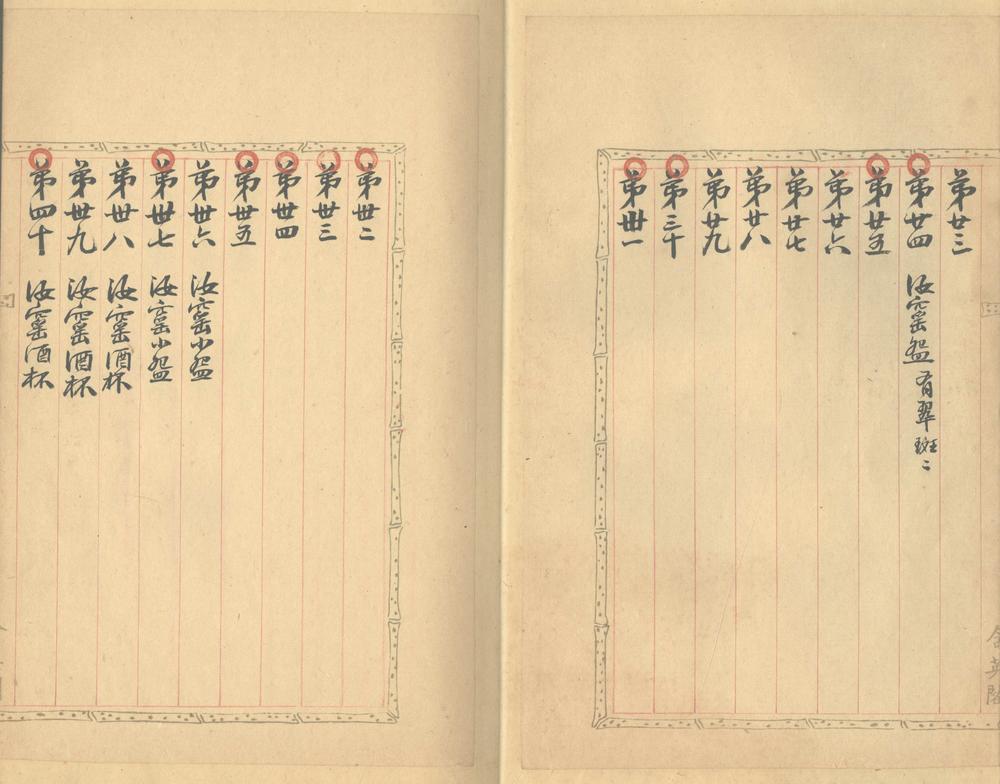 第廿三
第廿四 汝窰盌有翠斑二
第廿五
第廿六
第廿七
第廿八
第廿九
第三十
第卅一
第卅二
第卅三
第卅四
第卅五
第卅六 汝窰小盌
第卅七 汝窰小盌
第卅八 汝窰酒杯
第卅九 汝窰酒杯
第四十 汝窰酒杯